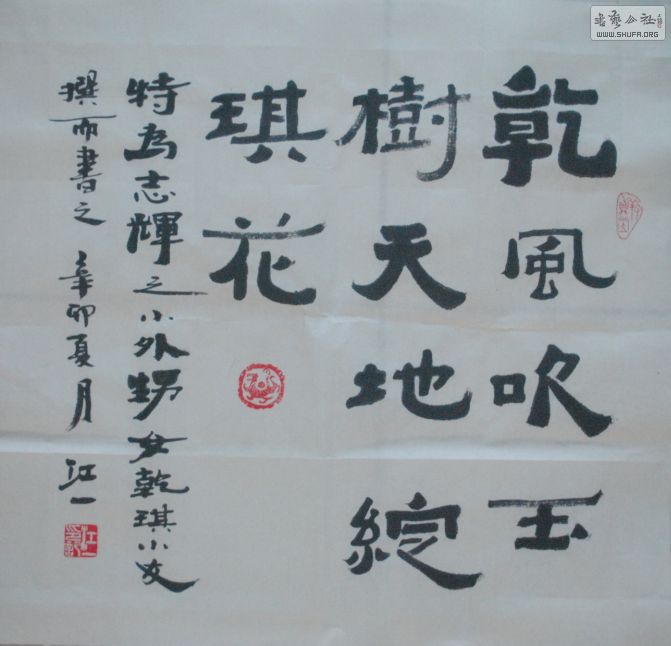 乾風吹玉
樹天地綻
琪花
特為志輝之小外甥女乾琪小女
撰而書之 辛卯夏月 江一
書藝公社
WWW.SHUFA.ORG